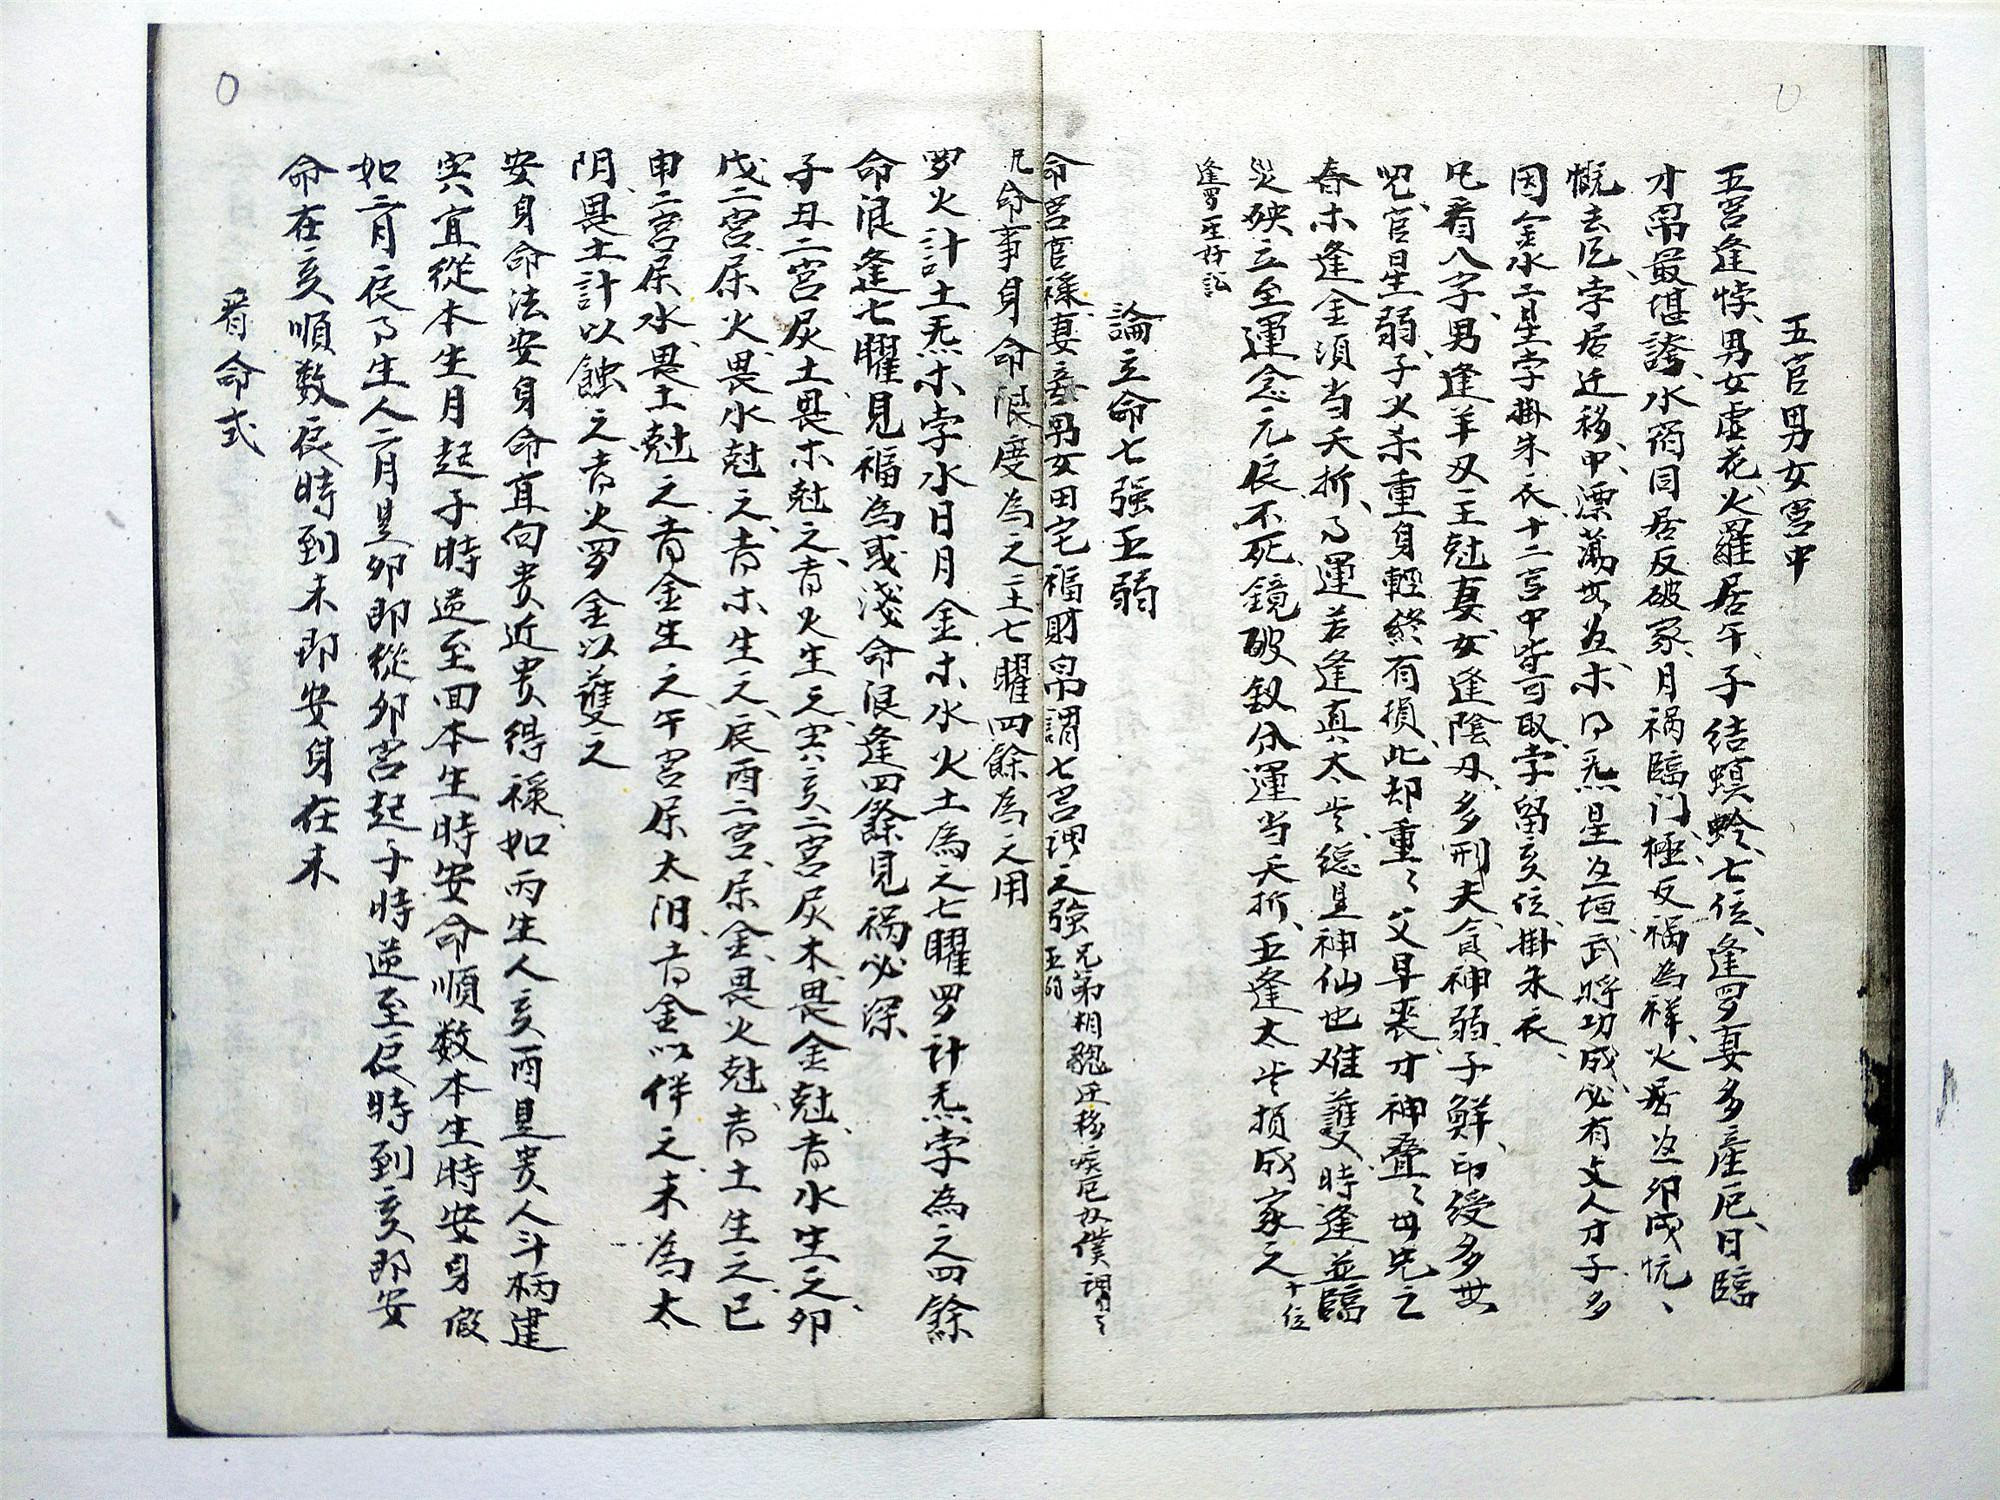 五官男女宮中
五宮逢悖男女虛花火羅居午子結螟蛉七位逢罗妻多產厄日臨
才帛最堪誇水
同居反破家月祸臨门極反祸為祥火居
卯成
慨去
孛居迁移中漂蕩
木
炁星
垣武將功成必有文人才子多
因金水二星孛掛朱衣十二宮中皆可取孛留亥位掛朱衣
凡看八字男逢羊刃主尅妻女逢陰刃多刑夫貪神弱子鮮印绶多
児官星弱子火杀重身輕終有損此却重〻父早丧才神叠〻母先亡
春木逢金須当夭折
運若逢真太岁總是神仙也难護時逢並臨
災殃立至運念元辰不死鏡破釵分運当夭折五逢太岁損成家之 十位
逢罗
好訟
論立命七强五弱
命宮官祿妻妾男女田宅福財帛謂七宮謂之强 兄弟相貌迁移疾厄奴僕謂之五弱
凡命事身命限度為之主七曜四餘為之用
罗火計土炁木孛水日月金木水火土為之七曜罗計炁孛為之四餘
命限逢七曜見福為或淺命限逢四餘見祸必深
子丑二宮屬土畏木尅之者火生之寅亥二宮屬木畏金尅者水生之卯
戌二宮屬火畏水尅之者木生之辰酉二宮屬金畏火尅者土生之巳
申二宮屬水畏土尅之者金生之午宮屬太阳者金以伴之未為太
阴畏土計以蝕之者火罗金以護之
安身命法安身命直向贵近贵得祿如丙生人亥酉是贵人斗柄建
寅直從本生月起子時逆至回本生時安命順数本生時安身假
如二月辰时生人二月是卯即從卯宮起子時逆至辰時到亥即安
命在亥順数辰時到未即安身在未
看命式